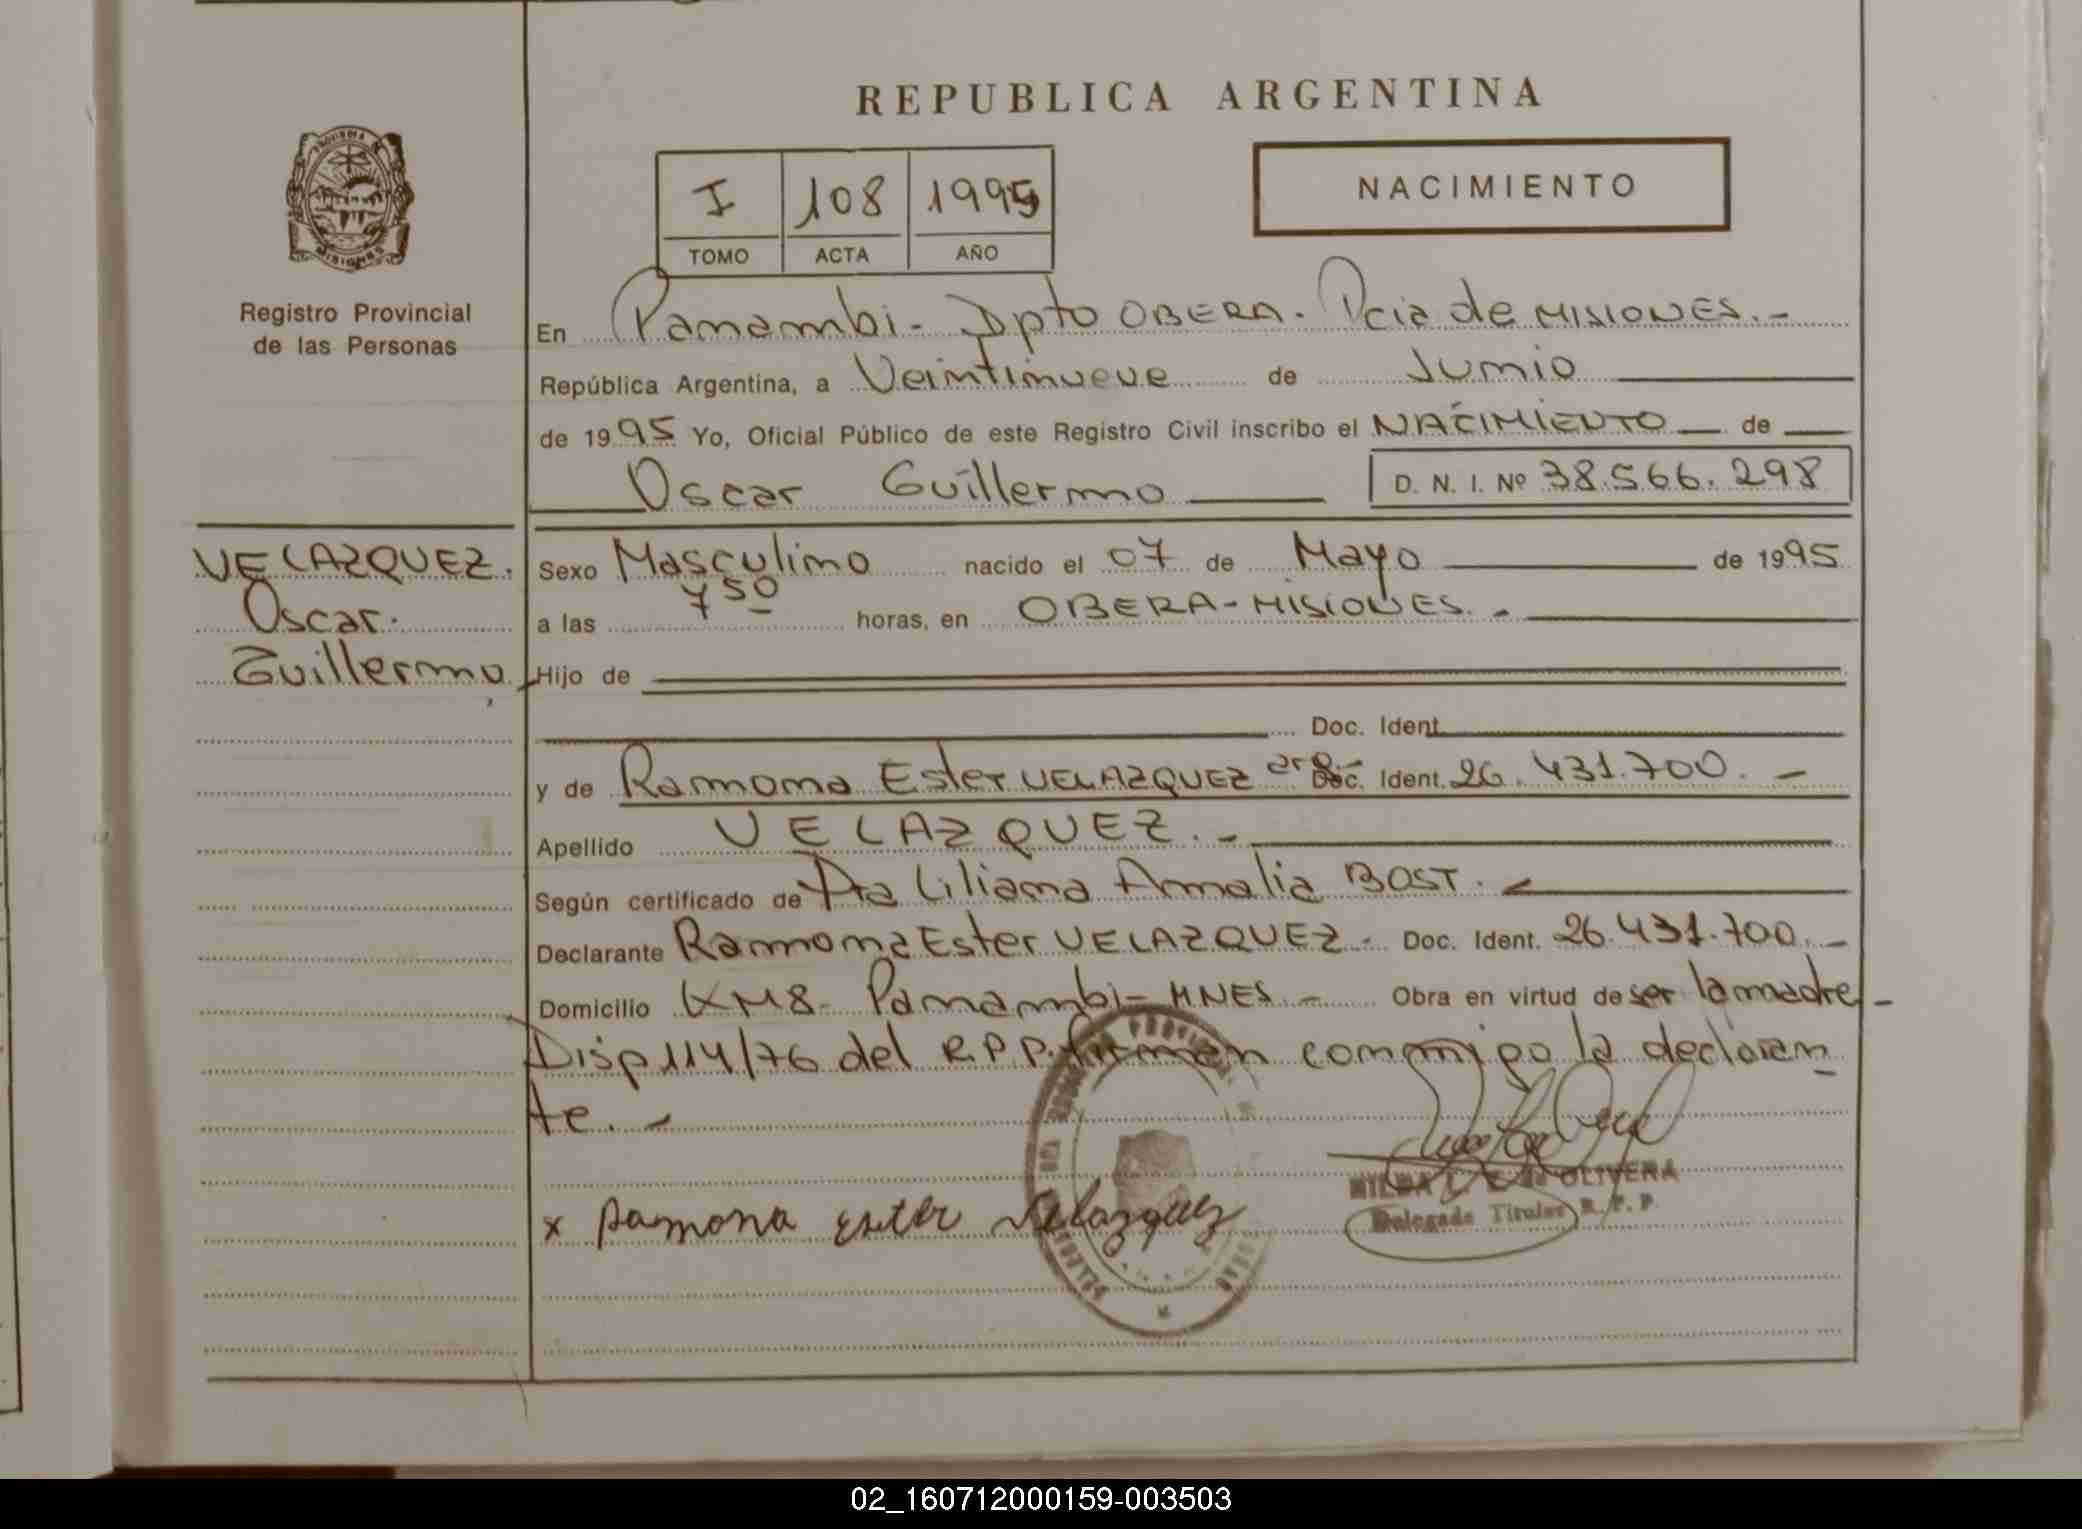 REPUBLICA ARGENTINA
PROVINCIA
MISIONES
Registro Provincial
de las Personas
I 108 1995
TOMO ACTA AÑO
NACIMIENTO
En Panambi - Dpto OBERA. Pcia de MISIONES.-
República Argentina, a Veintinueve de Junio
de 1995 Yo, Oficial Público de este Registro Civil inscribo el NACIMIENTO de
Oscar Guillermo D. N. I. Nº 38.566.298
VELAZQUEZ.
Oscar.
Guillermo
Sexo Masculino nacido el 07 de Mayo de 1995
a las 7 50 horas, en OBERA-MISIONES.-
Hijo de
Doc. Ident.
y de Ramona Ester VELAZQUEZ arg.- Doc. Ident. 26.431.700.-
Apellido VELAZQUEZ.-
Según certificado de Dra Liliana Amalia BOST.-
Declarante Ramona Ester VELAZQUEZ- Doc. Ident. 26.431.700.-
Domicilio KM8- Panambi- MNES.- Obra en virtud de ser la madre-
Disp 114/76 del R.P.P. firman conmigo la declaran
te.-
x Ramona Ester Velazquez
HILDA L. E. de OLIVERA
Delegado Titular R. P. P.
02_160712000159-003503